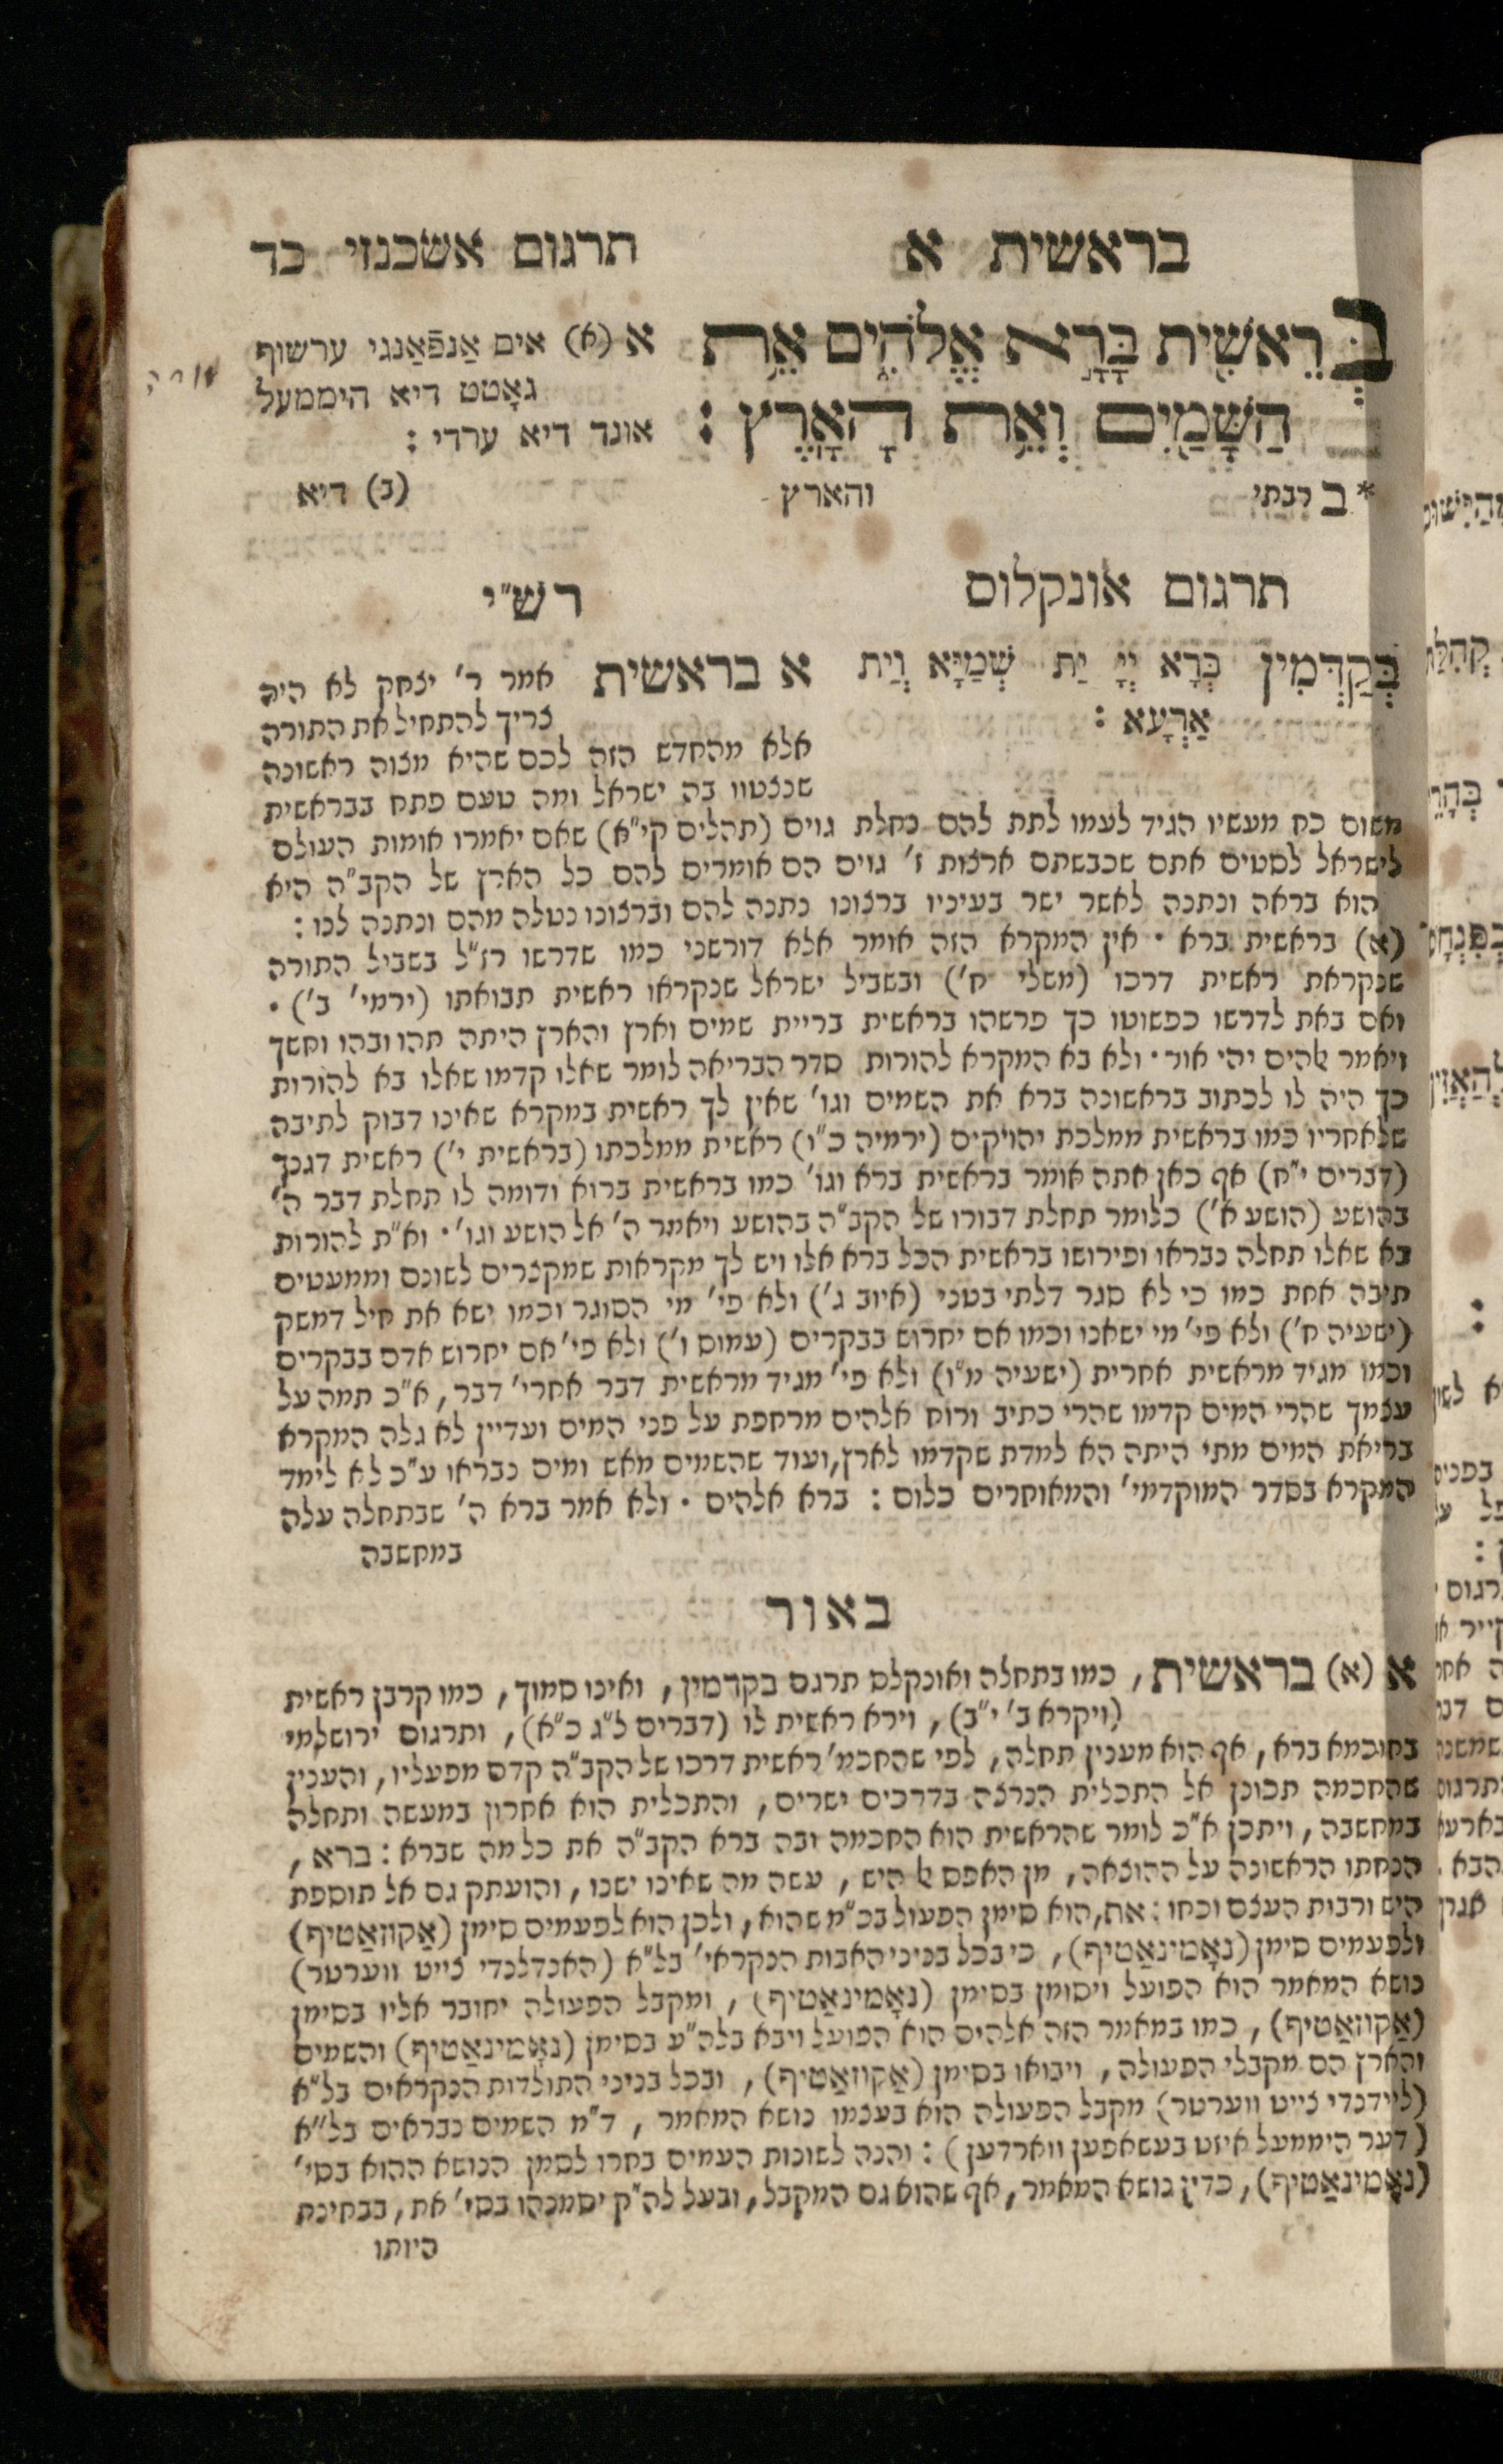 בראשית א
תרגום אשכנזי כד
בְּרֵאשִׁ֖ית בָּרָ֣א אֱלֹהִ֑ים אֵ֥ת
הַשָּׁמַ֖יִם וְאֵ֥ת הָאָֽרֶץ :
* ב רבתי
והארץ
א (א) אים אַנפֿאַנגי ערשוף
גאָטט דיא היממעל
אונד דיא ערדי :
(ב) דיא
תרגום אונקלוס
בְּקַדְּמִין בְּרָא יְיָ יַת שְׁמַיָּא וְיַת
אַרְעָא :
רש"י
א בראשית אמר ר' יצחק לא היה
צריך להתחיל את התורה
אלא מהחדש הזה לכם שהיא מצוה ראשונה
שנצטוו בה ישראל ומה טעם פתח בבראשית
משום כח מעשיו הגיד לעמו לתת להם נחלת גוים (תהלים קי"א) שאם יאמרו אומות העולם
לישראל לסטים אתם שכבשתם ארצות ז' גוים הם אומרים להם כל הארץ של הקב"ה היא
הוא בראה ונתנה לאשר ישר בעיניו ברצונו נתנה להם וברצונו נטלה מהם ונתנה לנו :
(א) בראשית ברא · אין המקרא הזה אומר אלא דורשני כמו שדרשו רז"ל בשביל התורה
שנקראת ראשית דרכו (משלי ח') ובשביל ישראל שנקראו ראשית תבואתו (ירמי' ב') ·
ואם באת לדרשו כפשוטו כך פרשהו בראשית בריית שמים וארץ והארץ היתה תהו ובהו וחשך
ויאמר אלהים יהי אור · ולא בא המקרא להורות סדר הבריאה לומר שאלו קדמו שאלו בא להורות
כך היה לו לכתוב בראשונה ברא את השמים וגו' שאין לך ראשית במקרא שאינו דבוק לתיבה
שלאחריו כמו בראשית ממלכת יהויקים (ירמיה כ"ו) ראשית ממלכתו (בראשית י') ראשית דגנך
(דברים י"ח) אף כאן אתה אומר בראשית ברא וגו' כמו בראשית ברוא ודומה לו תחלת דבר ה'
בהושע (הושע א') כלומר תחלת דבורו של הקב"ה בהושע ויאמר ה' אל הושע וגו' · וא"ת להורות
בא שאלו תחלה נבראו ופירושו בראשית הכל ברא אלו ויש לך מקראות שמקצרים לשונם וממעטים
תיבה אחת כמו כי לא סגר דלתי בטני (איוב ג') ולא פי' מי הסוגר וכמו ישא את חיל דמשק
(ישעיה ח') ולא פי' מי ישאנו וכמו אם יחרוש בבקרים (עמוס ו') ולא פי' אם יחרוש אדם בבקרים
וכמו מגיד מראשית אחרית (ישעיה מ"ו) ולא פי' מגיד מראשית דבר אחרי' דבר, א"כ תמה על
עצמך שהרי המים קדמו שהרי כתיב ורוח אלהים מרחפת על פני המים ועדיין לא גלה המקרא
בריאת המים מתי היתה הא למדת שקדמו לארץ, ועוד שהשמים מאש ומים נבראו ע"כ לא לימד
המקרא בסדר המוקדמי' והמאוחרים כלום : ברא אלהים · ולא אמר ברא ה' שבתחלה עלה
במחשבה
באור
א (א) בראשית, כמו בתחלה ואונקלס תרגם בקדמין, ואינו סמוך, כמו קרבן ראשית
(ויקרא ב' י"ב), וירא ראשית לו (דברים ל"ג כ"א), ותרגום ירושלמי
בחוכמא ברא, אף הוא מענין תחלה, לפי שהחכמ' ראשית דרכו של הקב"ה קדם מפעליו, והענין
שהחכמה תכונן אל התכלית הנרצה בדרכים ישרים, והתכלית הוא אחרון במעשה ותחלה
במחשבה, ויתכן א"כ לומר שהראשית הוא החכמה ובה ברא הקב"ה את כל מה שברא : ברא,
הנחתו הראשונה על ההוצאה, מן האפס אל היש, עשה מה שאינו ישנו, והועתק גם אל תוספת
היש ורבות העצם וכחו : את, הוא סימן הפעול בכ"מ שהוא, ולכן הוא לפעמים סימן (אַקוזאַטיף)
ולפעמים סימן (נאָמינאַטיף), כי בכל בניני האבות הנקראי' בל"א (האנדלנדי צייט ווערטר)
נושא המאמר הוא הפועל ויסומן בסימן (נאָמינאַטיף), ומקבל הפעולה יחובר אליו בסימן
(אַקוזאַטיף), כמו במאמר הזה אלהים הוא הפועל ויבא בלה"ע בסימן (נאָמינאַטיף) והשמים
והארץ הם מקבלי הפעולה, ויבואו בסימן (אַקוזאַטיף), ובכל בניני התולדות הנקראים בל"א
(ליידנדי צייט ווערטר) מקבל הפעולה הוא בעצמו נושא המאמר, ד"מ השמים נבראים בל"א
(דער היממעל איזט בעשאפען ווארדען) : והנה לשונות העמים בחרו לסמן הנושא ההוא בסי'
(נאָמינאַטיף), כדין נושא המאמר, אף שהוא גם המקבל, ובעל לה"ק יסמנהו בסי' את, בבחינת
היותו